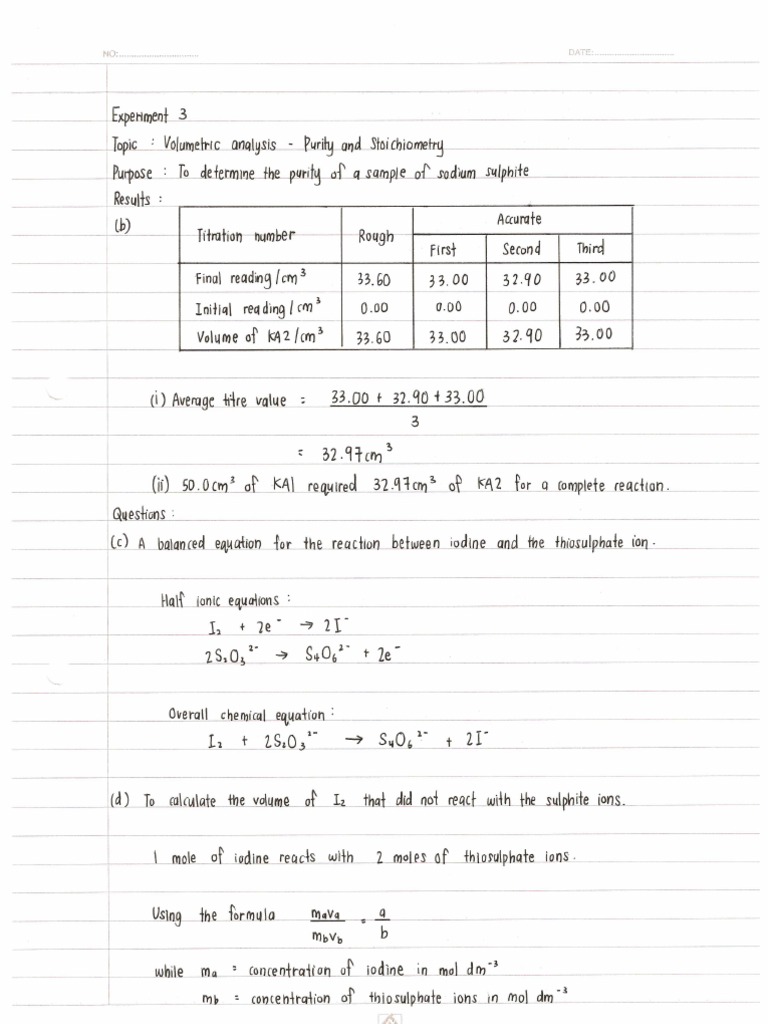 NO:
DATE:
Experiment 3
Topic : Volumetric analysis - Purity and Stoichiometry
Purpose : To determine the purity of a sample of sodium sulphite
Results :
(b)
Titration number Rough Accurate
First Second Third
Final reading / cm³ 33.60 33.00 32.90 33.00
Initial reading / cm³ 0.00 0.00 0.00 0.00
Volume of KA2 / cm³ 33.60 33.00 32.90 33.00
(i) Average titre value = 33.00 + 32.90 + 33.00
3
= 32.97 cm³
(ii) 50.0 cm³ of KA1 required 32.97 cm³ of KA2 for a complete reaction.
Questions :
(c) A balanced equation for the reaction between iodine and the thiosulphate ion.
Half ionic equations :
I₂ + 2e⁻ → 2I⁻
2S₂O₃²⁻ → S₄O₆²⁻ + 2e⁻
Overall chemical equation :
I₂ + 2S₂O₃²⁻ → S₄O₆²⁻ + 2I⁻
(d) To calculate the volume of I₂ that did not react with the sulphite ions.
1 mole of iodine reacts with 2 moles of thiosulphate ions.
Using the formula mₐvₐ / m_bv_b = a / b
while mₐ = concentration of iodine in mol dm⁻³
m_b = concentration of thiosulphate ions in mol dm⁻³